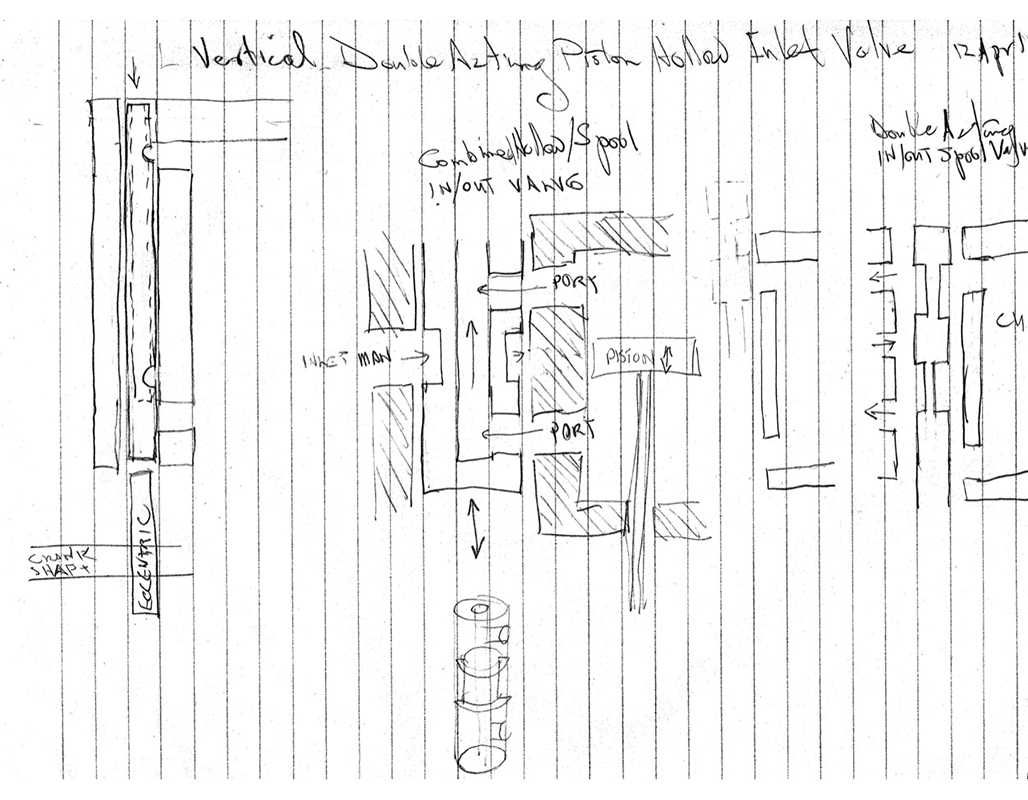 Vertical Double Acting Piston Hollow Inlet Valve 12 Apr
Combined Hollow/Spool
IN/OUT VALVE
Double Acting
IN/OUT Spool Valv
PORT
INLET MAN
PISTON
CH
PORT
ECCENTRIC
CRANK
SHAFT